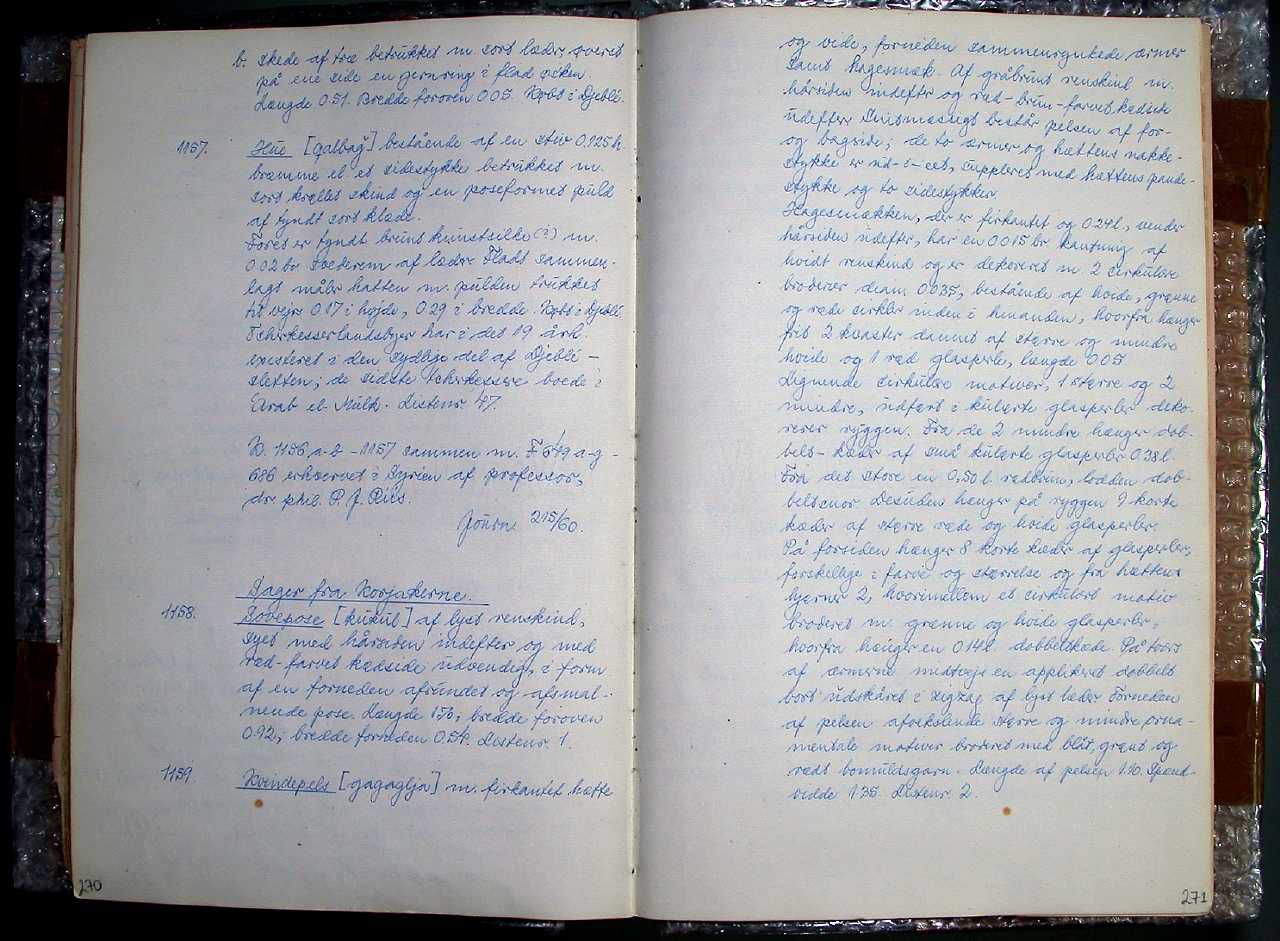 b. skede af træ betrukket m. sort læder, øverst
på ene side en jernring i flad
Længde 0.51. Bredde foroven 0.05. Købt i Djeblé.
1157. Hue [qalbaq] bestående af en stiv 0.125 h.
bræmme el. et sidestykke betrukket m.
sort krøllet skind og en poseformet puld
af tyndt sort klæde.
Foret er tyndt brunt kunstsilke (?) m.
0.02 br. svederem af læder. Fladt sammen-
lagt måler hatten m. pulden trukket
til vejrs 0.17 i højde, 0.29 i bredde. Købt i Djeblé.
Tcherkesserlandsbyer har i det 19 årh.
existeret i den sydlige del af Djeblé-
sletten; de sidste tcherkessere boede i
Arab el-Mulk. Listenr. 47.
K. 1156 a-b - 1157 sammen m. F 649 a-g -
686 erhvervet i Syrien af professor,
dr. phil. P. J. Riis.
Journr. 215/60.
Sager fra Korjakerne.
1158. Sovepose [kukul] af lyst renskind,
syet med hårsiden indefter og med
rød-farvet kødside udvendig, i form
af en forneden afrundet og afsmal-
nende pose. Længde 156, bredde foroven
0.92, bredde forneden 0.54. Listenr. 1.
1159. Kvindepels [gagaglja] m. firkantet hætte
270
og vide, forneden sammenrynkede ærmer
samt hagesmæk. Af gråbrunt renskind m.
hårsiden indefter og rød-brun-farvet kødside
udefter. Snitmæssigt består pelsen af for-
og bagside; de to ærmer og hættens nakke-
stykke er ud-i-eet, suppleret med hættens pande-
stykke og to sidestykker.
Hagesmækken, der er firkantet og 0.24 l., vender
hårsiden udefter, har en 0.015 br. kantning af
hvidt renskind og er dekoreret m. 2 cirkulære
broderier diam. 0.035, bestående af hvide, grønne
og røde cirkler inden i hinanden, hvorfra hænger
frit 2 kvaster dannet af større og mindre
hvide og 1 rød glasperle, længde 0.05.
Lignende cirkulære motiver, 1 større og 2
mindre, udført i kulørte glasperler deko-
rerer ryggen. Fra de 2 mindre hænger dob-
belt-kæder af små kulørte glasperler 0.38 l.
Fra det store en 0,50 l. rødbrun, lodden dob-
beltsnor. Desuden hænger på ryggen 9 korte
kæder af større røde og hvide glasperler.
På forsiden hænger 8 korte kæder af glasperler,
forskellige i farve og størrelse og fra hættens
hjørner 2, hvorimellem et cirkulært motiv
broderet m. grønne og hvide glasperler,
hvorfra hænger en 0.14 l. dobbeltkæde. På tværs
af ærmerne midtvejs en applikeret dobbelt
bort udskåret i zigzag af lyst læder. Forneden
af pelsen afvekslende større og mindre orna-
mentale motiver broderet med blåt, grønt og
rødt bomuldsgarn. Længde af pelsen 1.10. Spænd-
vidde 1.35. Listenr. 2.
271